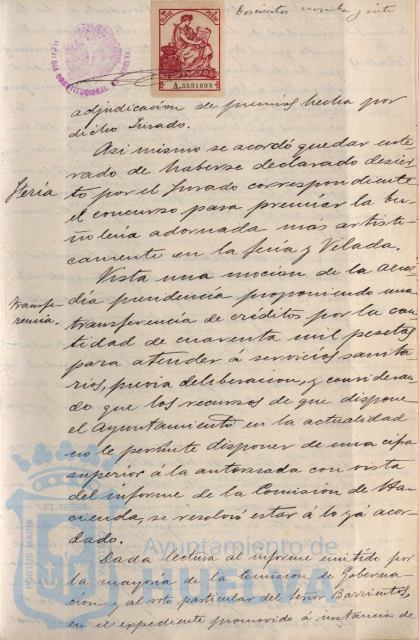 Doscientos noventa y siete
A.3531094
adjudicación de premios hecha por
dicho Jurado.
Asi mismo se acordó quedar ente-
rado de haberse declarado desier-
Feria
to por el Jurado correspondiente
el concurso para premiar la bu-
ñolería adornada mas artisti-
camente en la feria y Velada.
Vista una mocion de la Alcal-
Transfe-
rencia.
día presidencia proponiendo una
transferencia de créditos por la can-
tidad de cuarenta mil pesetas
para atender á servicios sanita-
rios, previa deliberacion, y consideran-
do que los recursos de que dispone
el Ayuntamiento en la actualidad
no le permite disponer de una cifra
superior á la autorizada con vista
del informe de la Comision de Ha-
cienda, se resolvió estar á lo ya acor-
dado.
Dada lectura al informe emitido por
la mayoria de la Comision de Goberna-
cion y al voto particular del Señor Barrientos,
en el expediente promovido á instancia de
PORTUS MARIS
ET TERRÆ
Ayuntamiento de
HUELVA